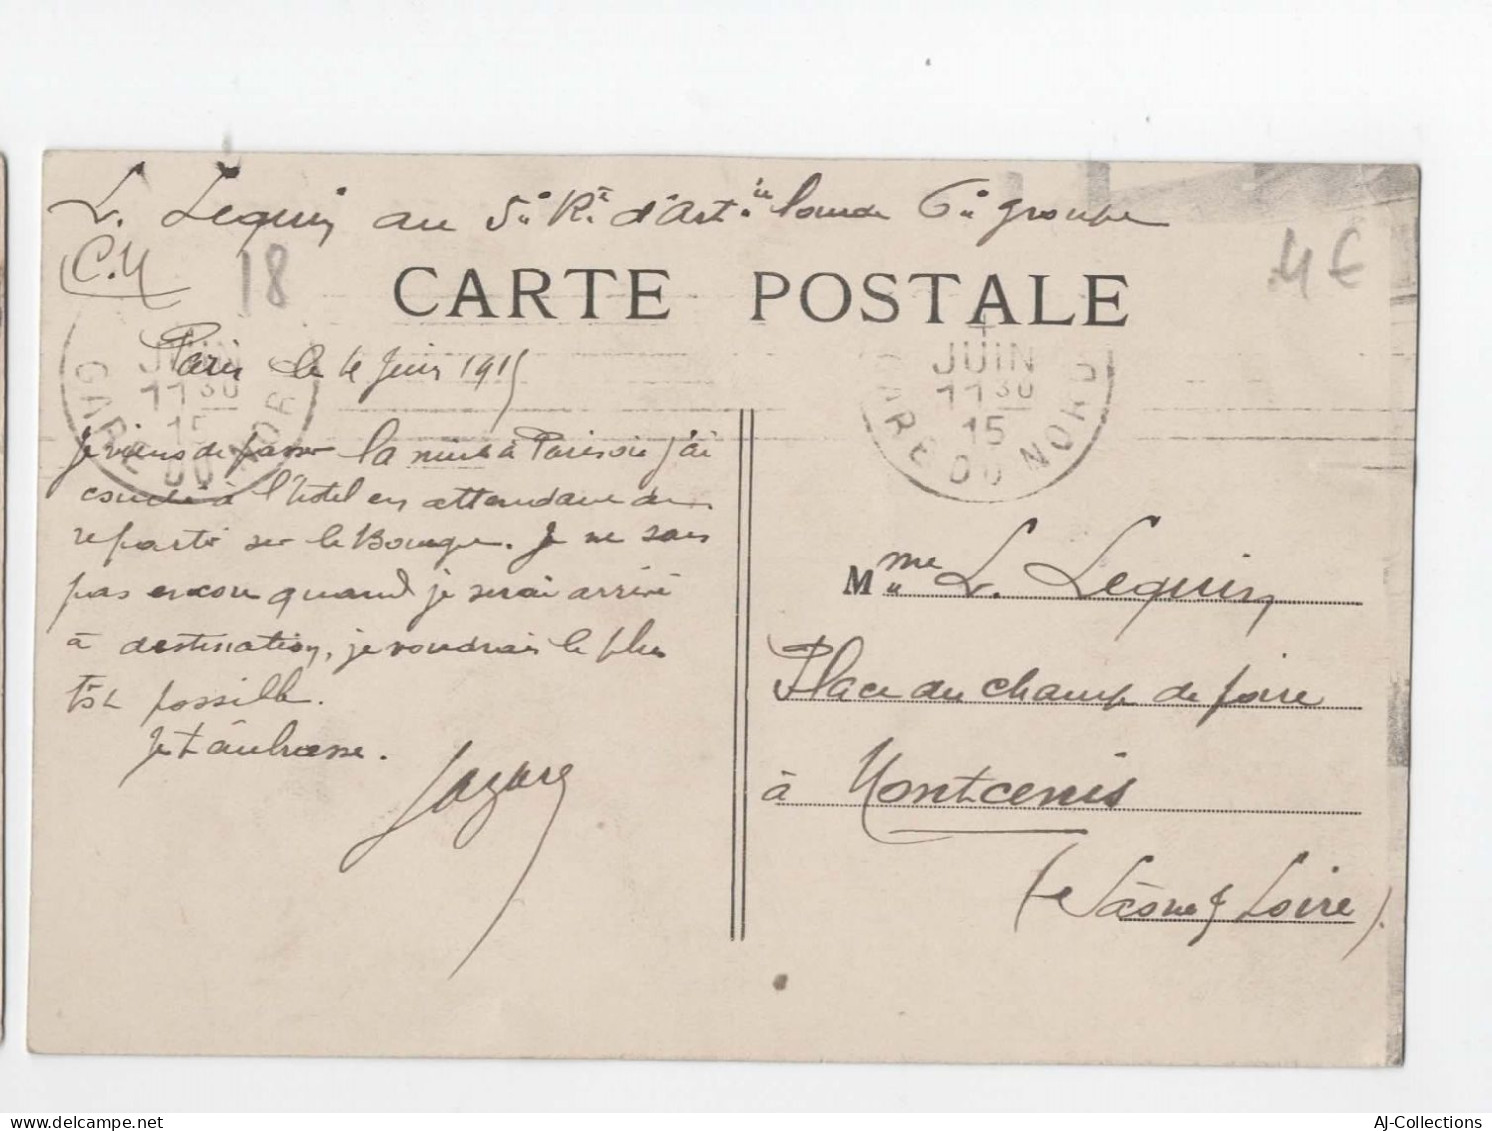 L. Lequin au 5e Rt d'Artie lourde 6e groupe
C.M
18
4€
CARTE POSTALE
Paris le 4 Juin 1915
JUIN
11 30
15
GARE DU NORD
4
JUIN
11 30
15
GARE DU NORD
Je viens de passer la nuit à Paris où j'ai
couché à l'hôtel en attendant de
repartir sur le Bourget. Je ne sais
pas encore quand je serai arrivé
à destination, je voudrais le plus
tôt possible.
Je t'embrasse.
Lazare
Mme L. Lequin
Place du champ de foire
à Montcenis
(Saône & Loire).
AJ-Collections